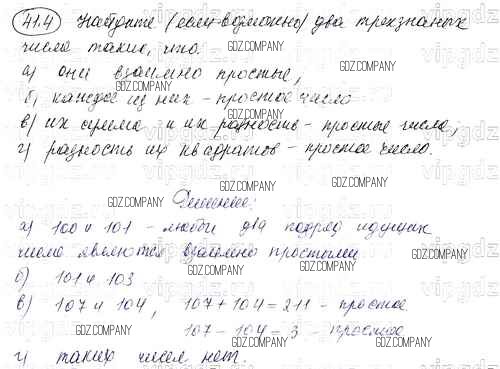 41.4 Найдите (если возможно) два трехзначных
числа такие, что:
а) они взаимно простые;
б) каждое из них - простое число
в) их сумма и их разность - простые числа;
г) разность их квадратов - простое число.
Решение:
а) 100 и 101 - любые два подряд идущих
числа являются взаимно простыми
б) 101 и 103
в) 107 и 104, 107 + 104 = 211 - простое
107 - 104 = 3 - простое
г) таких чисел нет.
GDZ.COMPANY
vipgdz.com